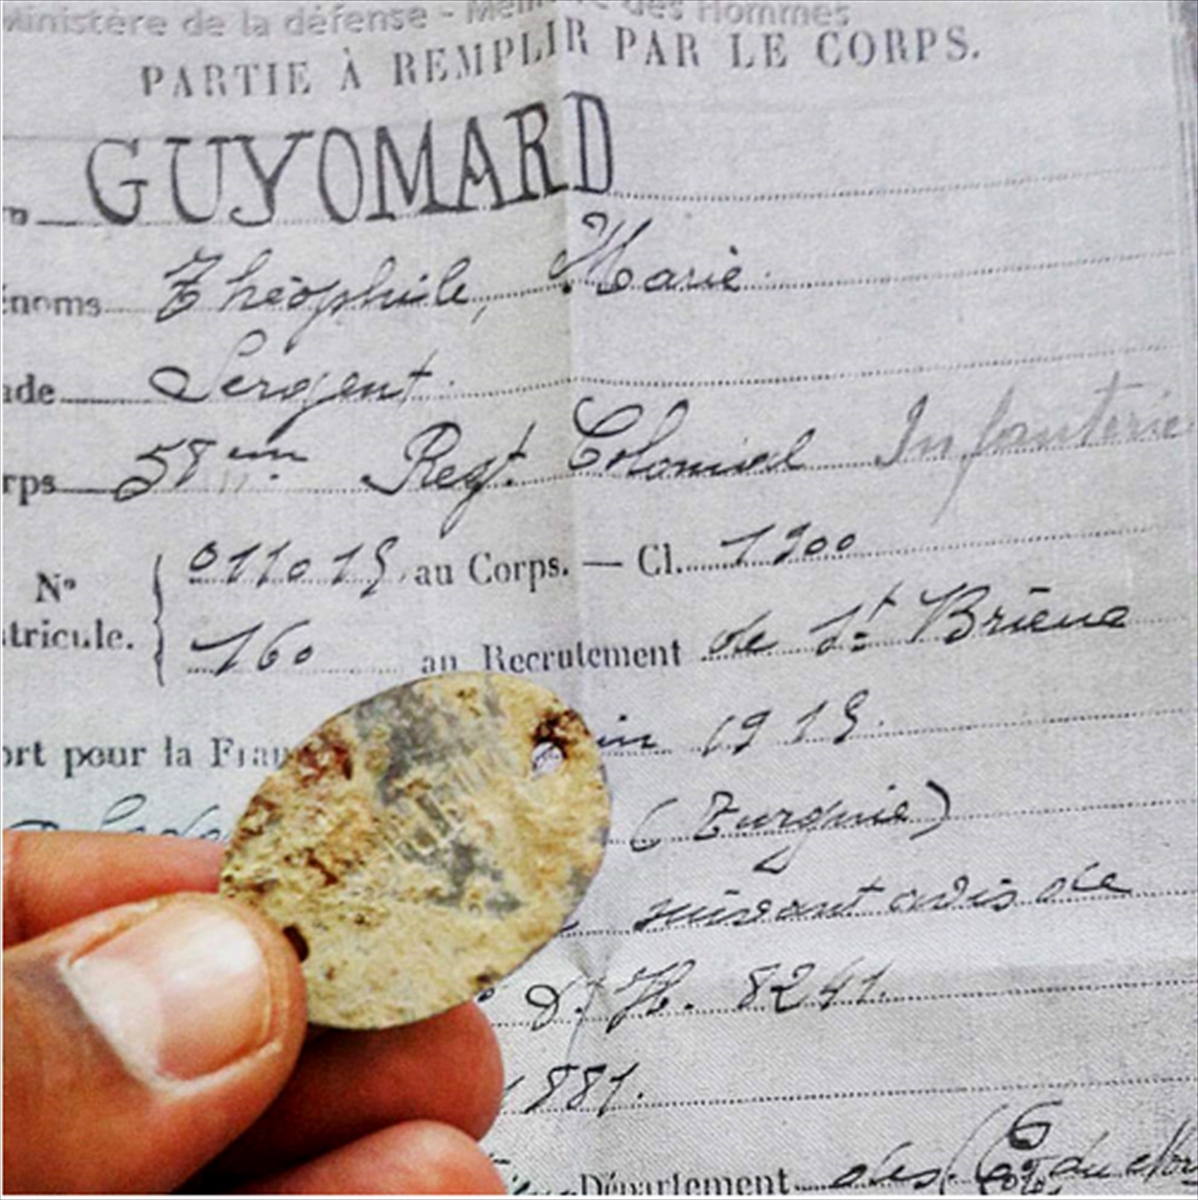 Ministère de la défense - Mémoire des Hommes
PARTIE À REMPLIR PAR LE CORPS.
GUYOMARD
énoms Théophile, Marie
ade Sergent
rps 58ème Regt. Colonial Infanterie
N° tricule. 011015 au Corps. — Cl. 1900
160 au Recrutement de St Brieuc
ort pour la Fran in 1915.
(Turquie)
suivant avis de
D. H. 8241.
1881.
Département des Côtes du Nor